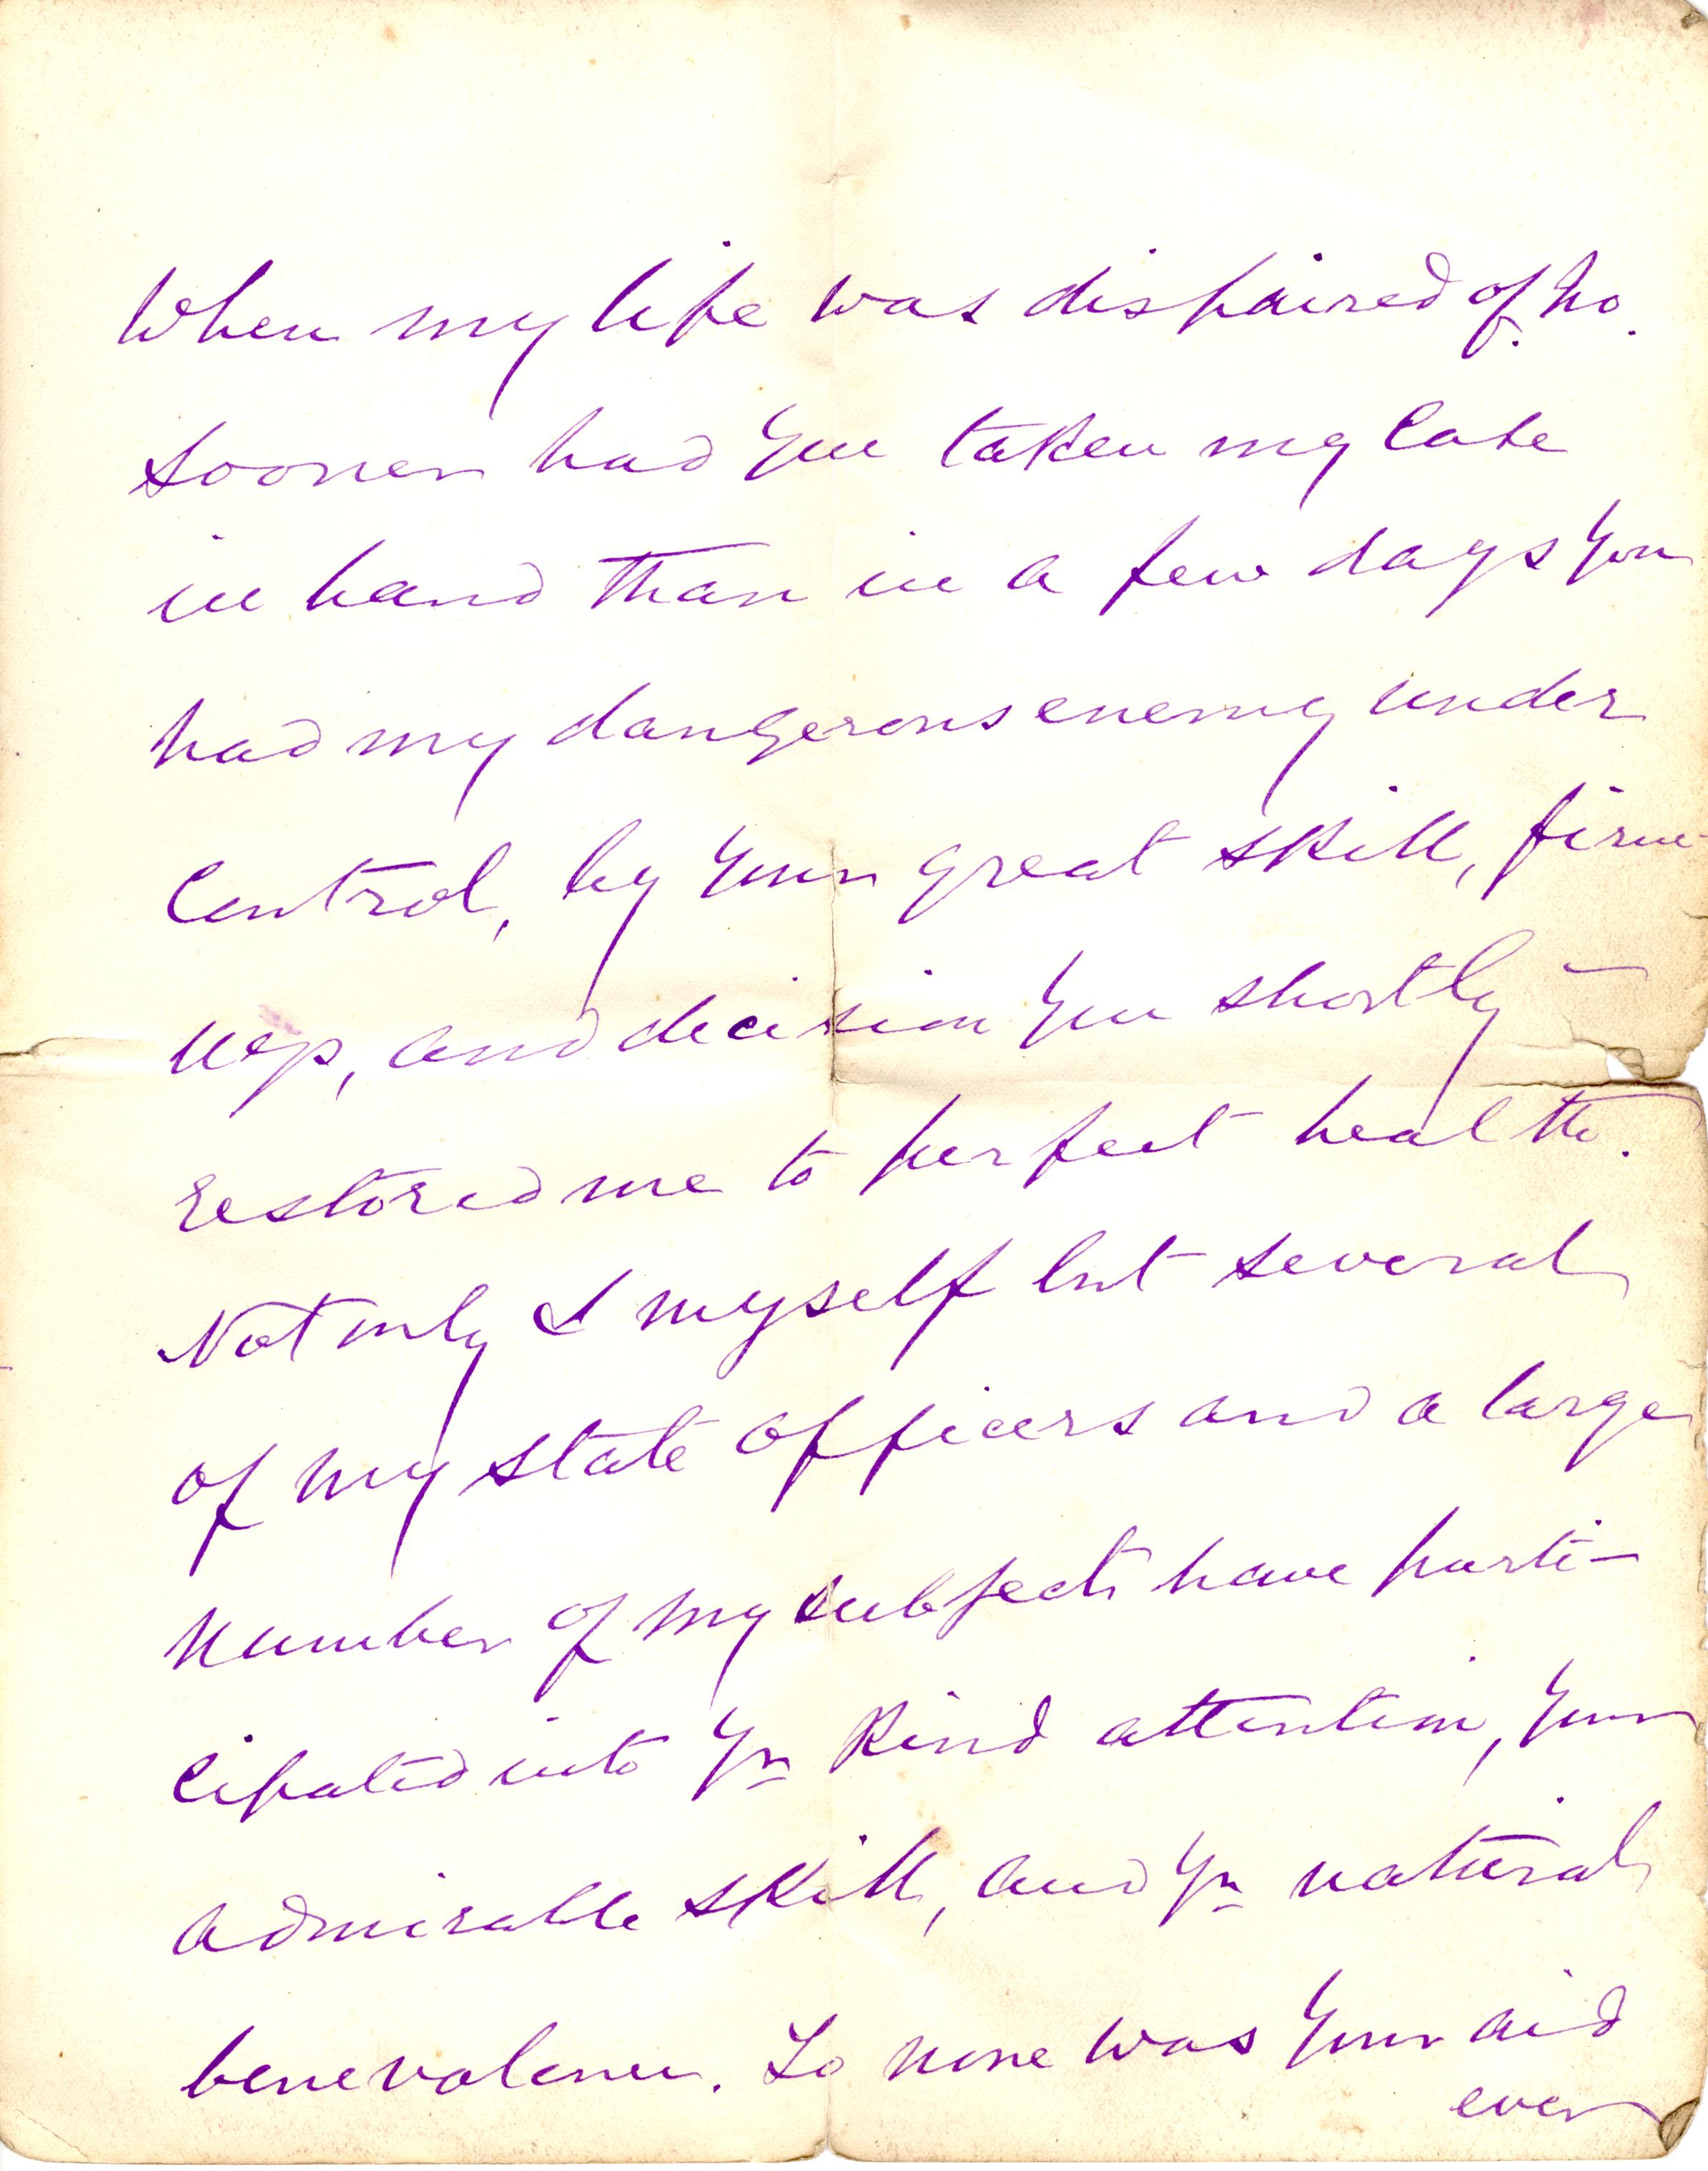 When my life was dispaired of. no.
sooner had you taken my case
in hand than in a few days you
had my dangerous enemy under
control, by your great skill, firm-
ness, and decision you shortly -
restored me to perfect health.
Not only I myself but several
of my state officers and a large
number of my subjects have parti-
cipated into Yr kind attention, your
admirable skill, and Yr natural
benevolence. To none was your aid
ever